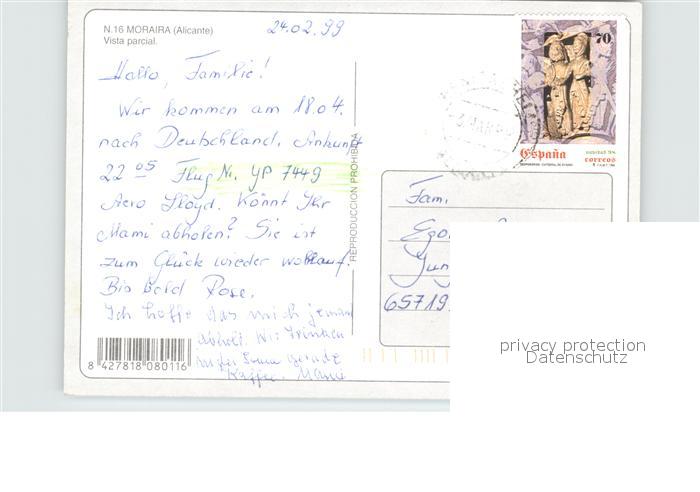 N.16 MORAIRA (Alicante)
Vista parcial.
24.02.99
Hallo, Familie!
Wir kommen am 18.04.
nach Deutschland. Ankunft
22 05 Flug Nr. YP 7449
Aero Lloyd. Könnt Ihr
Mami abholen? Sie ist
zum Glück wieder wohlauf.
Bis bald Rose.
Ich hoffe das mich jemand
abholt. Wir Trinken
in der Sonne gerade
Kaffee. Mama
8 427818 080116
REPRODUCCION PROHIBIDA
70
España
NAVIDAD
correos
Fam.
Ego
Jun
65719
privacy protection
Datenschutz